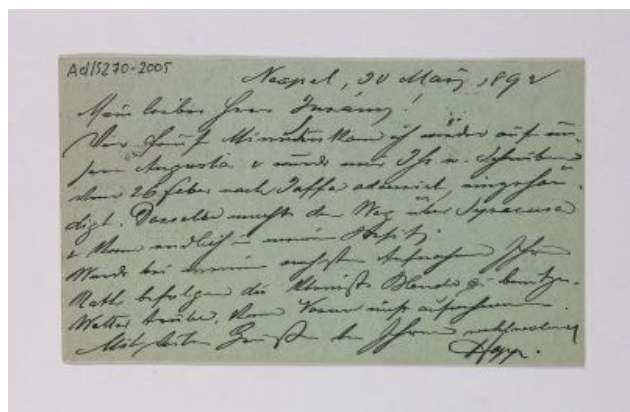 Ad/5270-2005
Neapel, 20 März 1892
Mein lieber Herr Iványi!
Vor fünf Minuten kam ich wieder auf un-
sere Augusta & wurde mir Ihr w. Schreiben
vom 26 Feber nach Jaffa adressirt, eingehän-
digt. Dasselbe machte den Weg über Syracusa
& kam endlich in meinen Besitz.
Werde bei meinen nächsten Aufnahmen Ihren
Rath befolgen die kleinste Blende zu benützen.
Wetter trübe, kann Vesuv nicht aufnehmen.
Grüße Ihnen
Hopp.